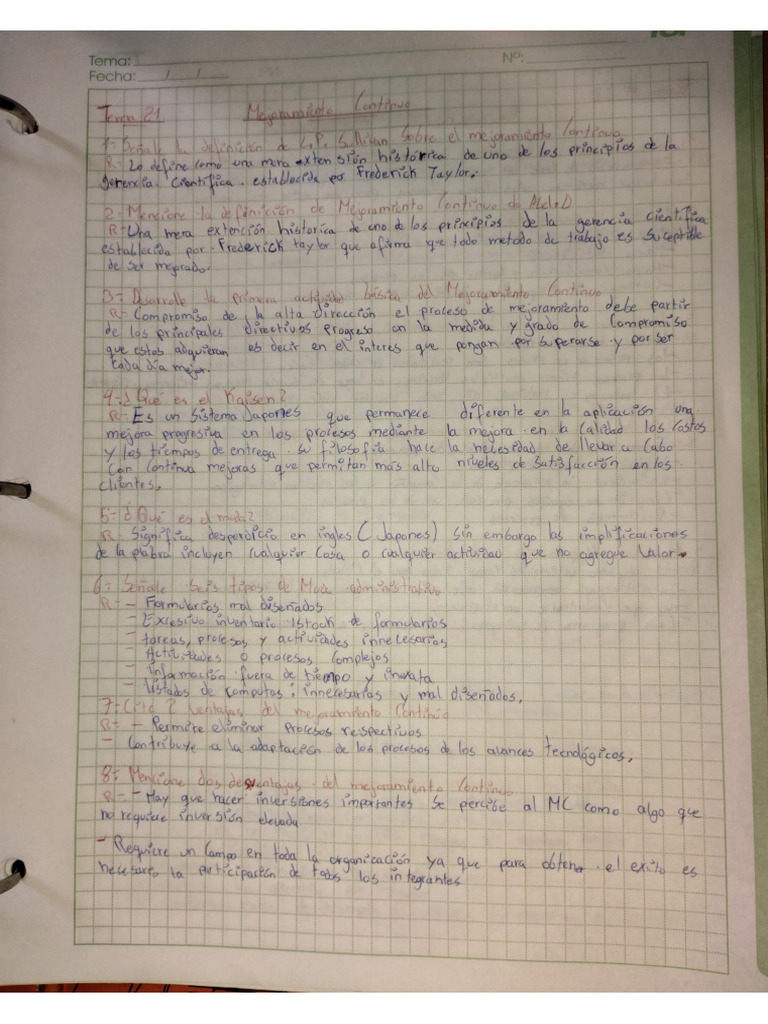 Tema:
Nº:
Fecha: / /
Tema 21 Mejoramiento Continuo
1- Señale la definición de L.P. Sullivan Sobre el mejoramiento Continuo
R- Lo define como una mera extensión histórica de uno de los principios de la
gerencia Cientifica establecida por Frederick Taylor.
2- Mencione la definición de Mejoramiento Continuo de
R- Una mera extención historica de uno de los principios de la gerencia cientifica
establecida por Frederick taylor que afirma que todo metodo de trabajo es suceptible
de ser mejorado.
3- Desarrolle la primera actividad básica del Mejoramiento Continuo
R- Compromiso de la alta dirección el proceso de mejoramiento debe partir
de los principales directivos progreso en la medida y grado de Compromiso
que estos adquieran es decir en el interes que pongan por superarse y por ser
cada dia mejor.
4-¿Qué es el Kaisen?
R- Es un Sistema Japones que permanece diferente en la aplicación una
mejora progresiva en los procesos mediante la mejora en la Calidad los Costos
y los tiempos de entrega su filosofia hace la necesidad de llevar a Cabo
Con Continua mejoras que permitan más alto niveles de Satisfacción en los
clientes.
5-¿Qué es el muda?
R- Significa desperdicio en ingles (Japones) Sin embargo las implificaciones
de la plabra incluyen cualquier Cosa o cualquier actividad que no agregue Valor.
6- Señale Seis tipos de Muda administrativo
R= - Formularios mal diseñados
- Excesivo inventario stock de formularios
- tareas, procesos y actividades innecesarios
- Actividades o procesos complejos
- Información fuera de tiempo y inexata
- listados de computos innecesarias y mal diseñados.
7- Cite 2 Ventajas del mejoramiento Continuo
R= - Permite eliminar Procesos respectivos
- Contribuye a la adaptación de los procesos de los avances tecnológicos.
8- Mencione dos desventajas del mejoramiento Continuo
R= - Hay que hacer inversiones importantes Se percibe al MC como algo que
no requiere inversión elevada
- Requiere un Campo en toda la organización ya que para obtener el exito es
necesario la participación de todos los integrantes